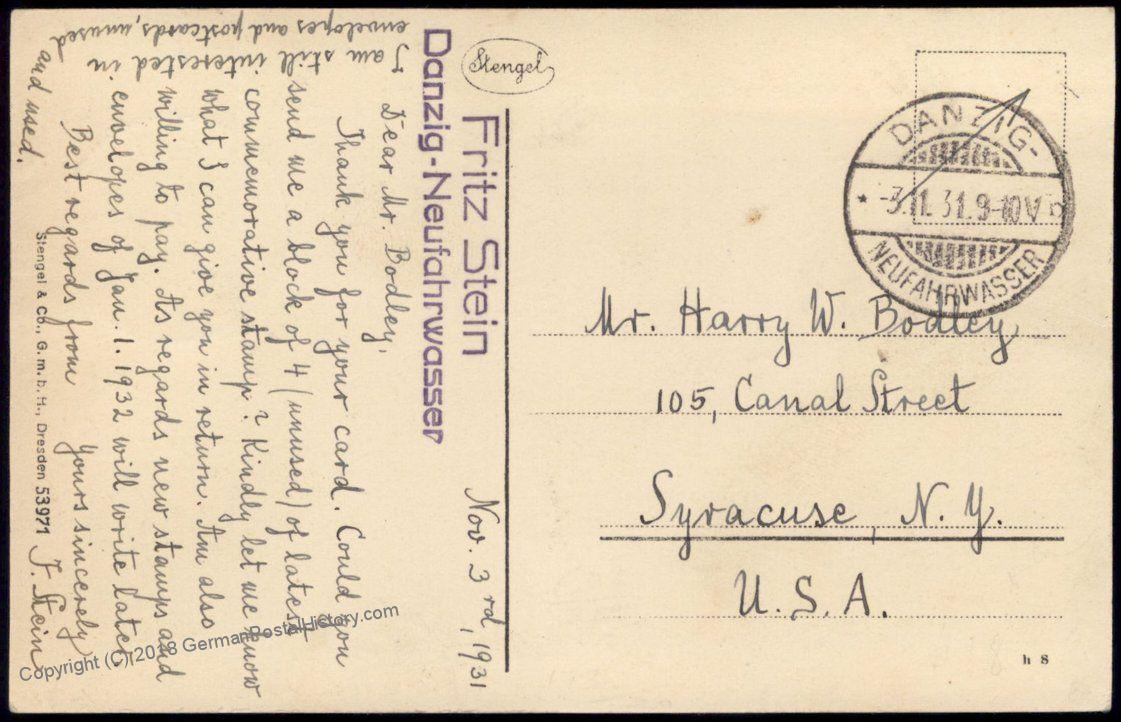 Stengel
Fritz Stein
Danzig-Neufahrwasser
Nov. 3rd, 1931
Dear Mr. Bodley,
Thank you for your card. Could you
send me a block of 4 (unused) of latest
commemorative stamp? Kindly let me know
what I can give you in return. Am also
willing to pay. As regards new stamps and
envelopes of Jan. 1. 1932 will write later.
Best regards from
yours sincerely
F. Stein
I am still interested in
envelopes and postcards, unused
and used.
Stengel & Co., G.m.b.H., Dresden 53971
DANZIG-
* -3.11.31.9-10V b
NEUFAHRWASSER
Mr. Harry W. Bodley,
105, Canal Street
Syracuse, N.Y.
U.S.A.
h 8
Copyright (C) 2018 GermanPostalHistory.com